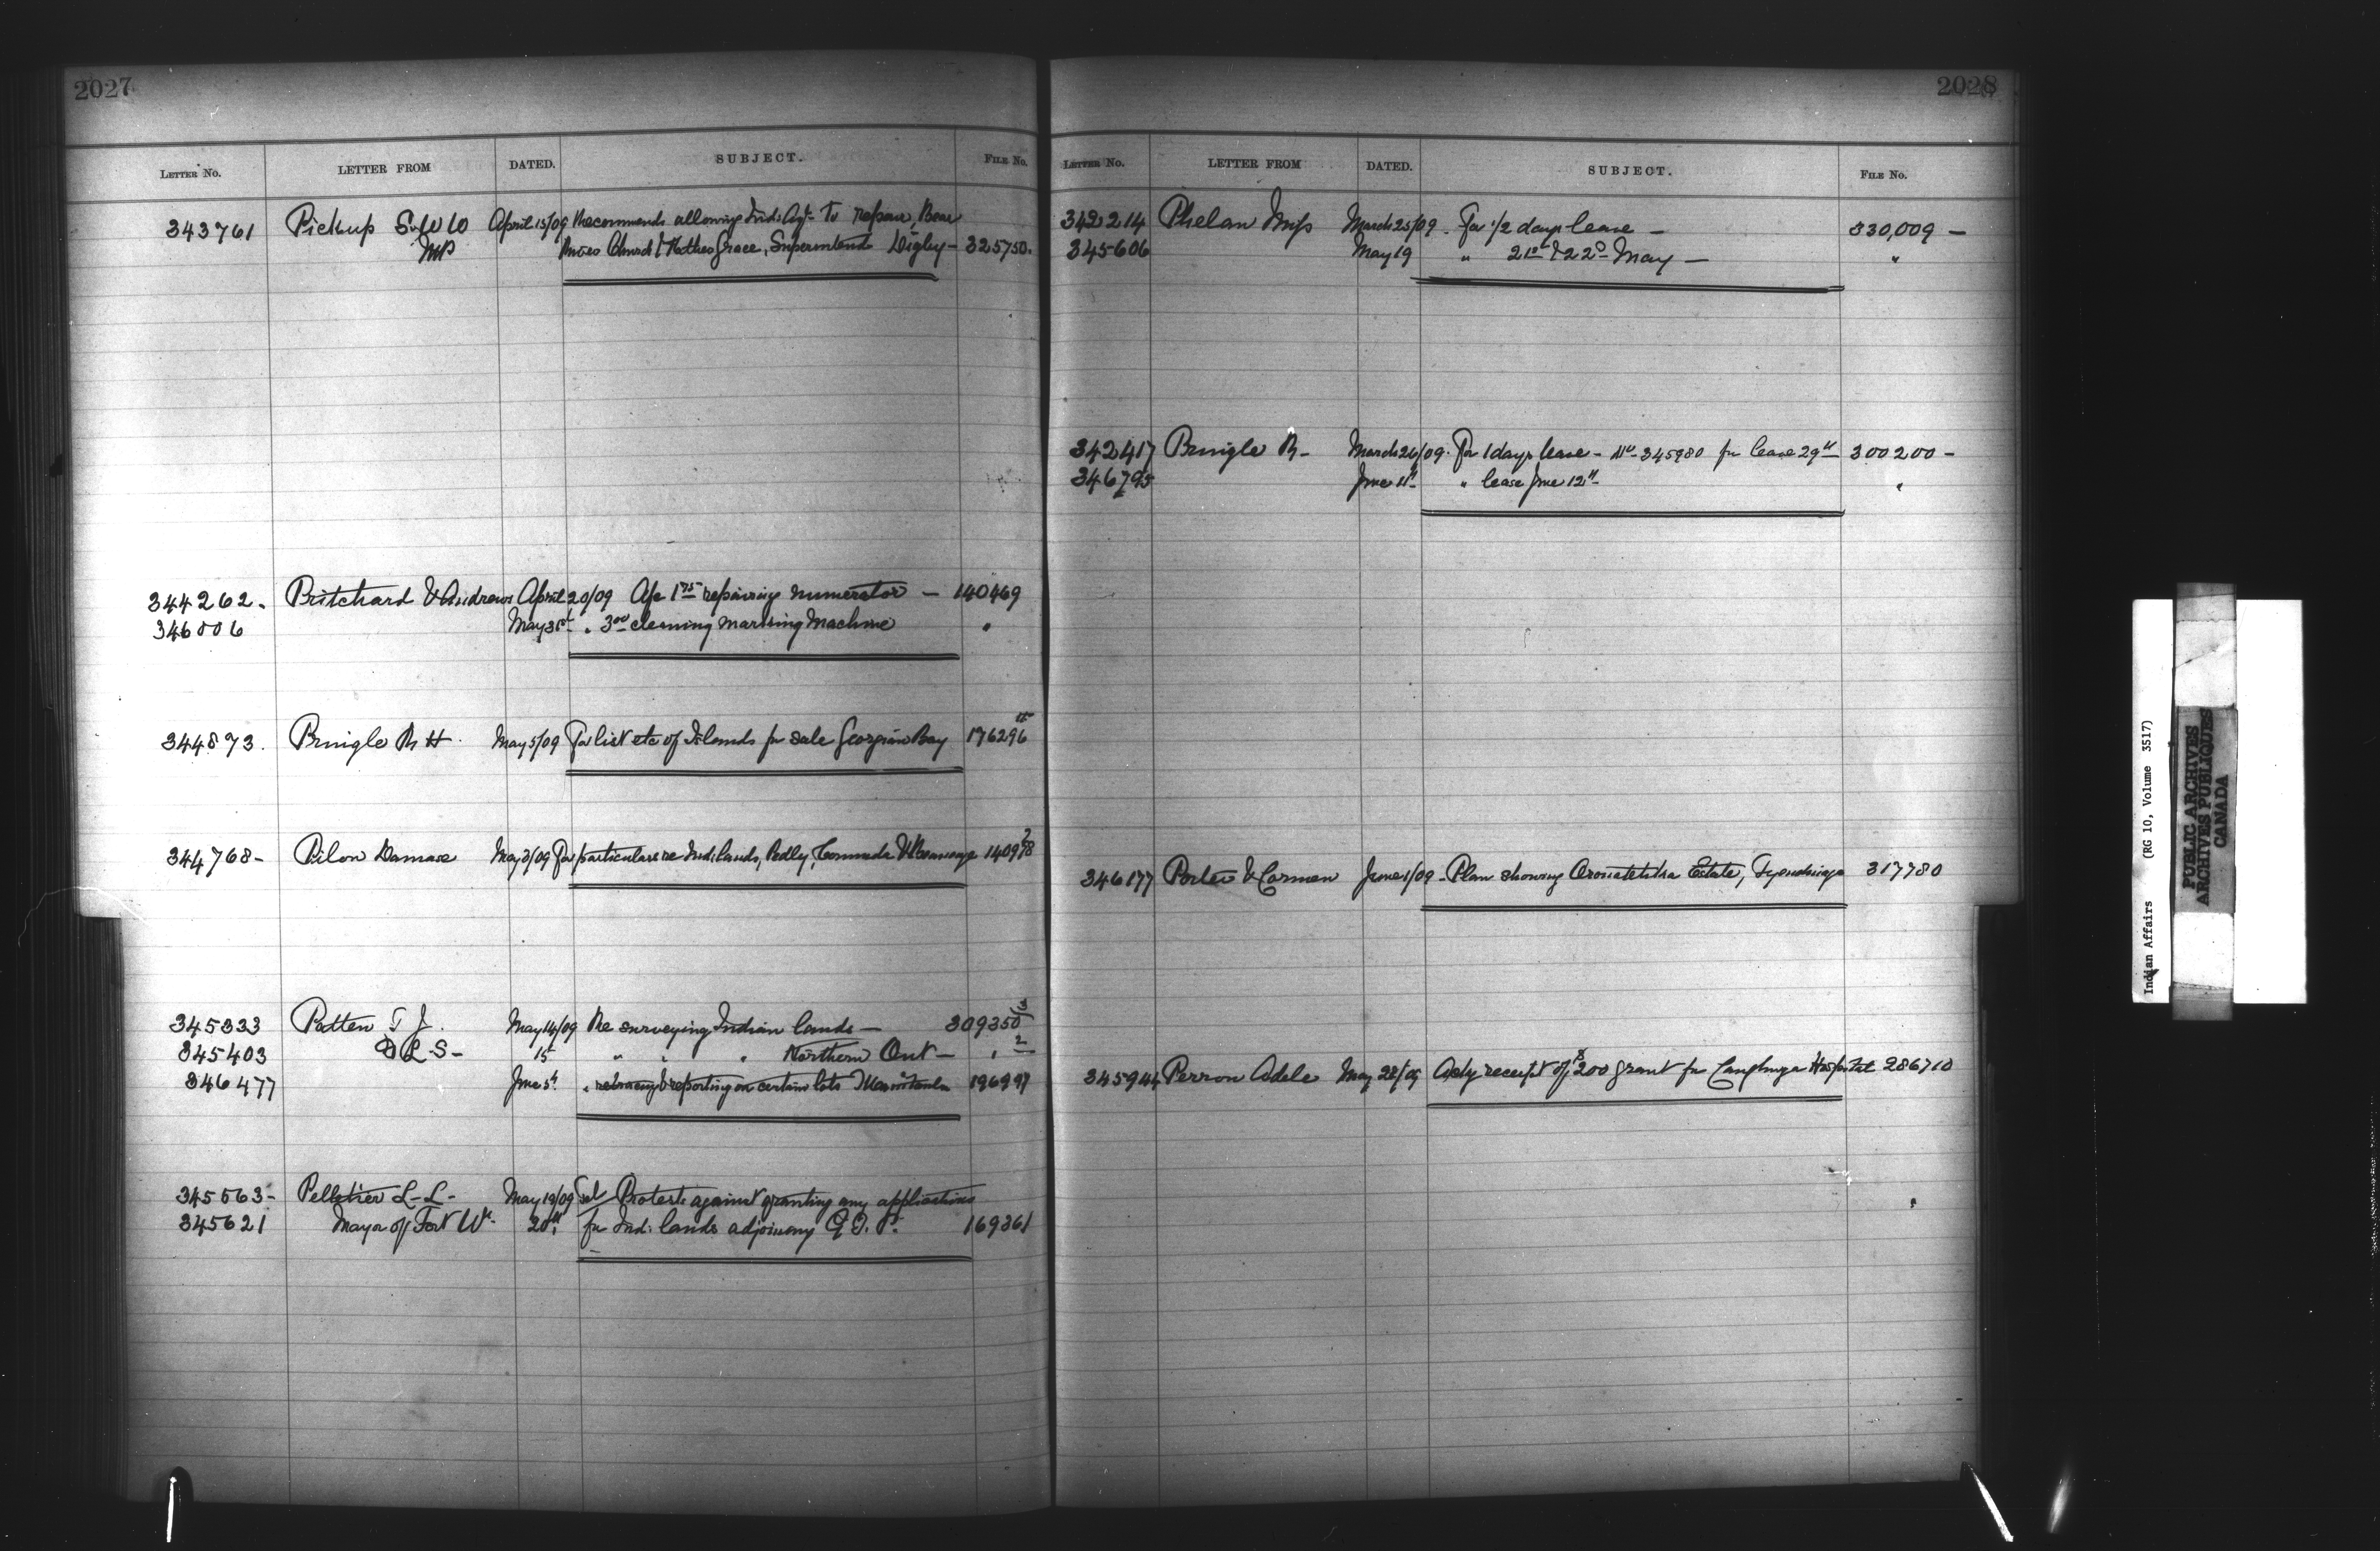 2027
LETTER NO. LETTER FROM DATED. SUBJECT. FILE NO.
343761 Pickup S W W April 15/09 Recommends allowing Ind: Agt. to repair Bear
MP River Church & Mother Grace, Superintend Digby - 325750.
344262. Pritchard & Andrews April 20/09 Afc 1 75 repairing numerator — 140469
346006 May 31st " 3 00 cleaning marking Machine "
344873. Pringle R H. May 5/09 For list etc of Islands for sale Georgian Bay 176296
344768- Pilon Damase May 3/09 For particulars re Ind: lands, Pedly,
345333 Patten T J. May 14/09 Re surveying Indian lands — 309350 3
345403 D L S- 15 " " " Northern Ont — " 2
346477 June 5th " retracing & reporting on certain lots 196997
345563- Pelletier L-L- May 19/09 Tel Protests against granting any applications
345621 Mayor of Fort Wm 20th for Ind: lands adjoining G. T. P. 169361
2028
LETTER NO. LETTER FROM DATED. SUBJECT. FILE NO.
342214 Phelan Miss March 25/09 - For 1/2 days leave — 330,009 —
345606 May 19 " 21st & 22d May — "
342417 Pringle R- March 26/09. For 1 days leave - 345980 for leave 29th 300200 -
346795 June 11th " leave June 12th "
346177 Porter & Carman June 1/09 - Plan showing Estate, Tyendinaga 317780
345944 Perron Adele May 28/09 Ackg receipt of $200 grant for Caughnaga Hospital 286710
Indian Affairs (RG 10, Volume 3517)
PUBLIC ARCHIVES
ARCHIVES PUBLIQUES
CANADA